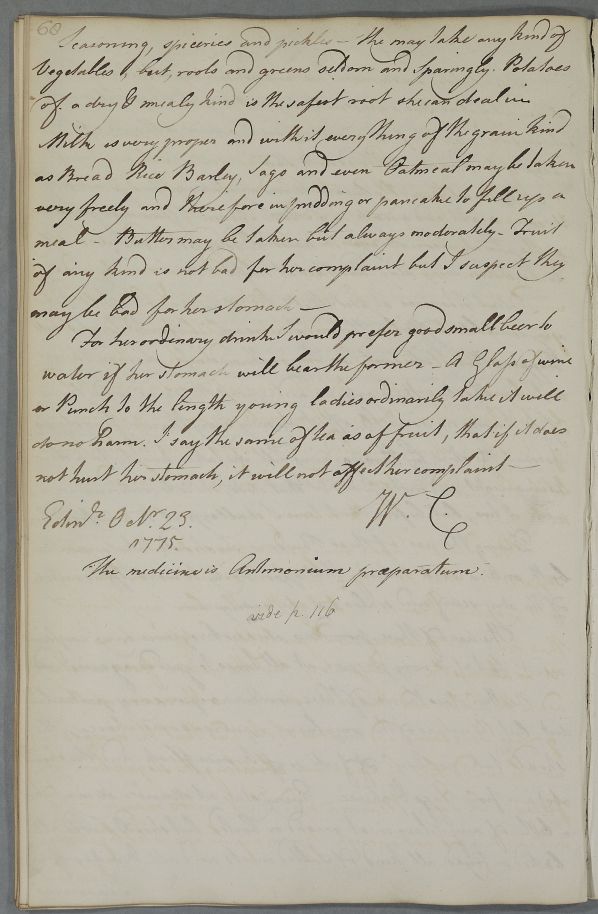 60
Seasoning, spiceries and pickles – She may take any kind of
Vegetables, but, roots and greens seldom and sparingly. Potatoes
of a dry & mealy kind is the safest root she can deal in
Milk is very proper and with it every thing of the grain kind
as Bread Rice Barley, Sago and even Oatmeal may be taken
very freely and therefore in pudding or pancake to fill up a
meal – Butter may be taken but always moderately – Fruit
of any kind is not bad for her complaint but I suspect they
may be bad for her stomach –
For her ordinary drink I would prefer good small beer to
water if her stomach will bear the former – A Glass of wine
or Punch to the length young ladies ordinarily take it will
do no harm. I say the same of tea as of fruit, that if it does
not hurt her stomach, it will not affect her complaint –
W. C.
Edinr. Octr. 23.
1775.
The medicine is Antimonium præparatum.
vide p. 116